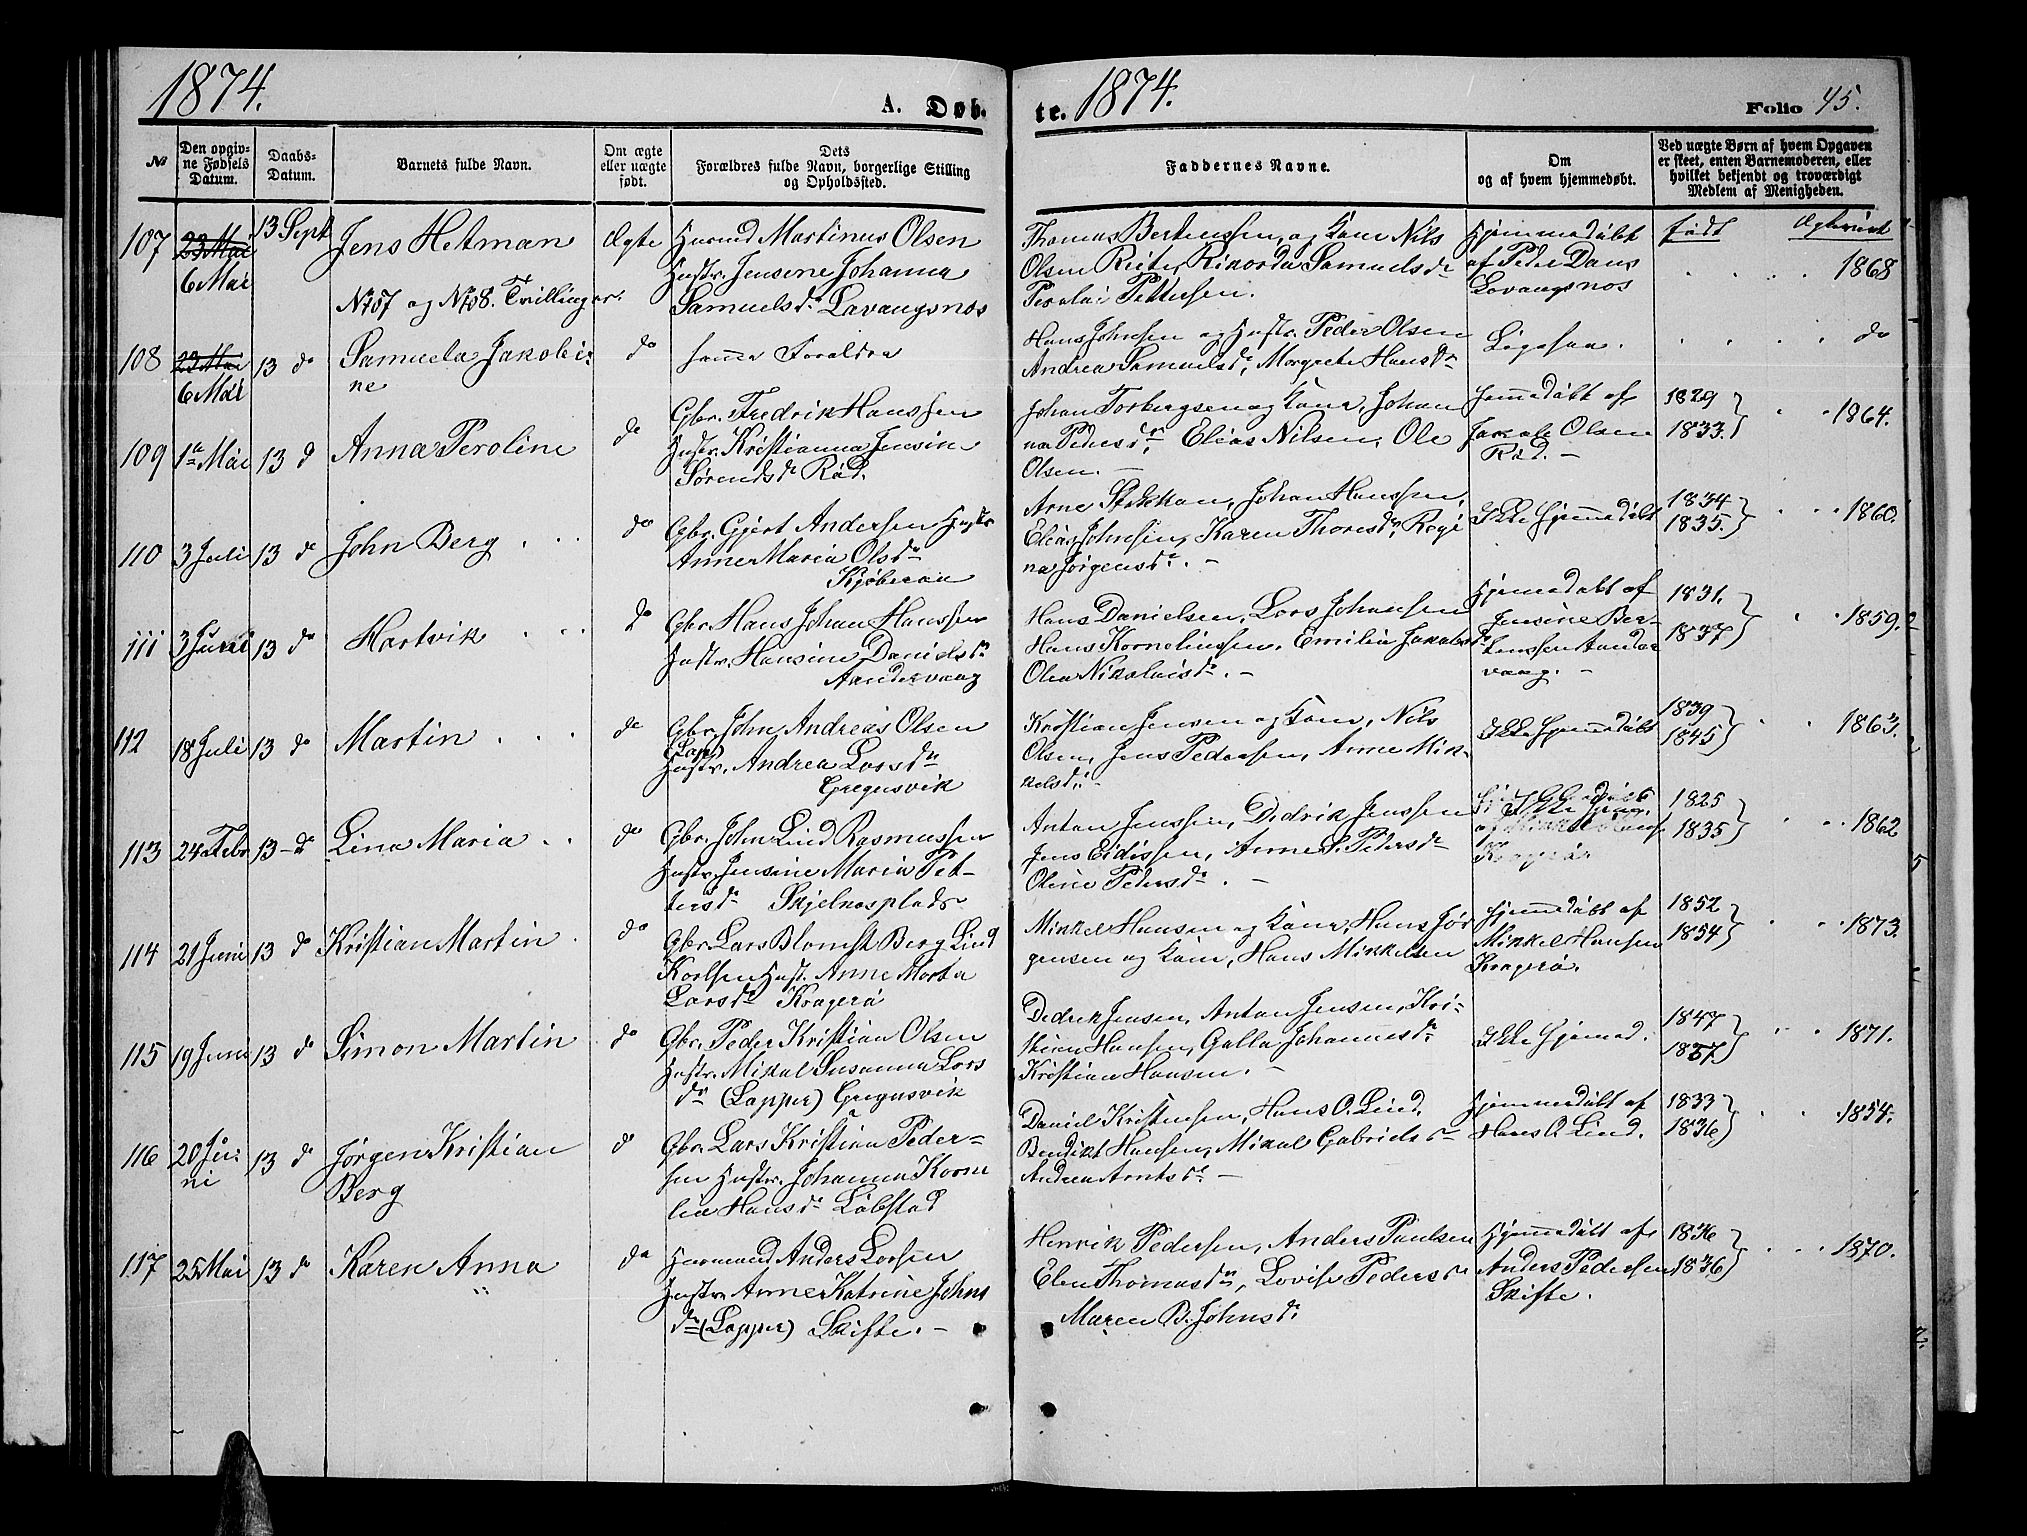 1874.
A. Døb-
te. 1874.
Folio 45.
№
Den opgiv-
ne Fødsels
Datum.
Daabs-
Datum.
Barnets fulde Navn.
Om ægte
eller uægte
født.
Dets
Forældres fulde Navn, borgerlige Stilling
og Opholdssted.
Faddernes Navne.
Om
og af hvem hjemmedøbt.
Ved uægte Børn af hvem Opgaven
er skeet, enten Barnemoderen, eller
hvilket bekjendt og troværdigt
Medlem af Menigheden.
født
107
23 Mai
6 Mai
13 Sept
Jens Hetman
No 107 og No 108. Tvillinger.
Ægte
Martinus Olsen
Hustr. Jensine Johanna
Samuelsdr Lavangsnes
Thomas Bertensen og Kone, Nils
Olsen Samuelsdr
Pettersen.
Hjemmedøbt
af Peder Dans
Lavangsnes
1868
108
23 Mai
6 Mai
13 do
Samuela Jakobi-
ne
do
samme Foreldre
Hans Johnsen og Hustr. Peder Olsen
Andrea Samuelsdr, Margrete Hansdr
Ligesaa.
do
109
1te Mai
13 d
Anna Peroline
do
Gbr. Fredrik Hanssen
Hustr. Kristianna Jensine
Sørensdr Rød.
Johan Torbergsen og Kone, Johan
na Pedersdr, Elias Nilsen, Ole
Olsen. —
Hjemmedøbt af
Jakob Olsen
Rød. —
1829
1833.
1864.
110
3 Juli
13 do
John Berg
do
Gbr. Gjert Andersen Hustr
Anne Maria Olsdr
Arne Stokkan, Johan Hanssen,
Elias Johnsen, Karen Thoresdr, Regi
na Jørgensdr. —
Ikke hjemmedøbt
1834
1835.
1860.
111
3 Juni
13 do
Hartvik
do
Gbr. Hans Johan Hanssen
Hustr. Hansine Danielsdr
Aandervaag
Hans Danielsen, Lars Johansen
Hans Kornelinssen, Emilie Jakobsdr
Olea Nikolaisdr. —
Hjemmedøbt af
Jensine Ber-
tenssen Aander
vaag. —
1831.
1837
1859.
112
18 Juli
13 do
Martin
do
Gbr. John Andreas Olsen
(Lap)
Hustr. Andrea Larsdr
Gregusvik
Kristian Jensen og Kone, Nils
Olsen, Jens Pedersen, Anne Mik-
kelsdr
Ikke hjemmedøbt
1839
1845
1863.
113
24 Febr
13 - d
Lina Maria
do
Gbr. John Lind Rasmussen
Hustr. Jensine Maria Pet-
tersdr Skjelnesplads
Anton Jenssen, Didrik Jenssen
Jens Eidissen, Anne S. Pedersdr
Oline Pedersdr. —
1825
1835
1862
114
21 Juni
13 do
Kristian Martin
do
Gbr. Lars Blomst Berg Lind
Karlsen Hustr. Anne Marta
Larsdr Kragerø
Mikkel Hansen og Kone, Hans Jør
gensen og Kone, Hans Mikkelsen
Hjemmedøbt af
Mikkel Hansen
Kragerø.
1852
1854
1873.
115
19 Juni
13 do
Simon Martin
do
Gbr. Peder Kristian Olsen
Hustr. Mikal Susanna Lars
dr (Lapper) Gregusvik
Didrik Jensen, Anton Jensen, Kri-
stian Hansen, Galla Johannesdr
Kristian Hansen. —
Ikke hjemed.
1847
1857
1871.
116
20 Ju-
ni
13 do
Jørgen Kristian
Berg
do
Gbr. Lars Kristian Peder-
sen Hustr. Johanna Korne
lia Hansdr Løbstad
Daniel Kristensen, Hans O. Lind,
Bendikt Hansen, Mikal Gabrielsdr
Andrea Arntsdr —
Hjemmedøbt af
Hans O. Lind.
1833
1836
1854.
117
25 Mai
13 do
Karen Anna
do
Anders Larssen
Hustr. Anne Katrine Johns
dr (Lapper) Skifte. —
Henrik Pedersen, Anders Paulsen
Elen Thomasdr, Lovise Pedersdr
Maren B. Johnsdr
Hjemmedøbt af
Anders Pedersen
Skifte.
1836
1836
1870.